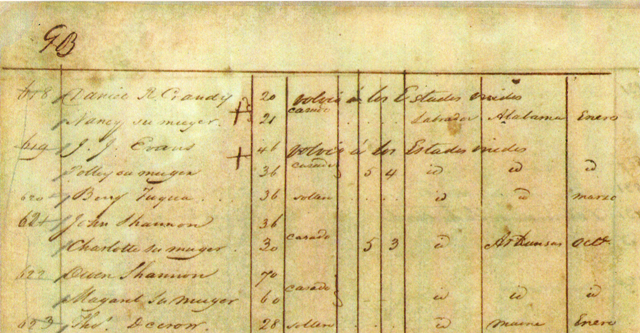 GB
618 R Grandy 20 volvió á los Estados unidos
Nancy su muger 21 casado . . . Labrador Alabama Enero
619 J. J. Evans + 46 volvió á los Estados unidos
Polley su muger 36 casado 5 4 id id id
620 Benj Fuqua . . 36 solten . . . id id marzo
621 John Shannon 36
Charlotte su muger . 30 casado 5 3 id Arkansas Octe
622 Owen Shannon 70
Magaret su muger 60 casado . . . id id id
623 Thos. 28 solten . . . id id Enero